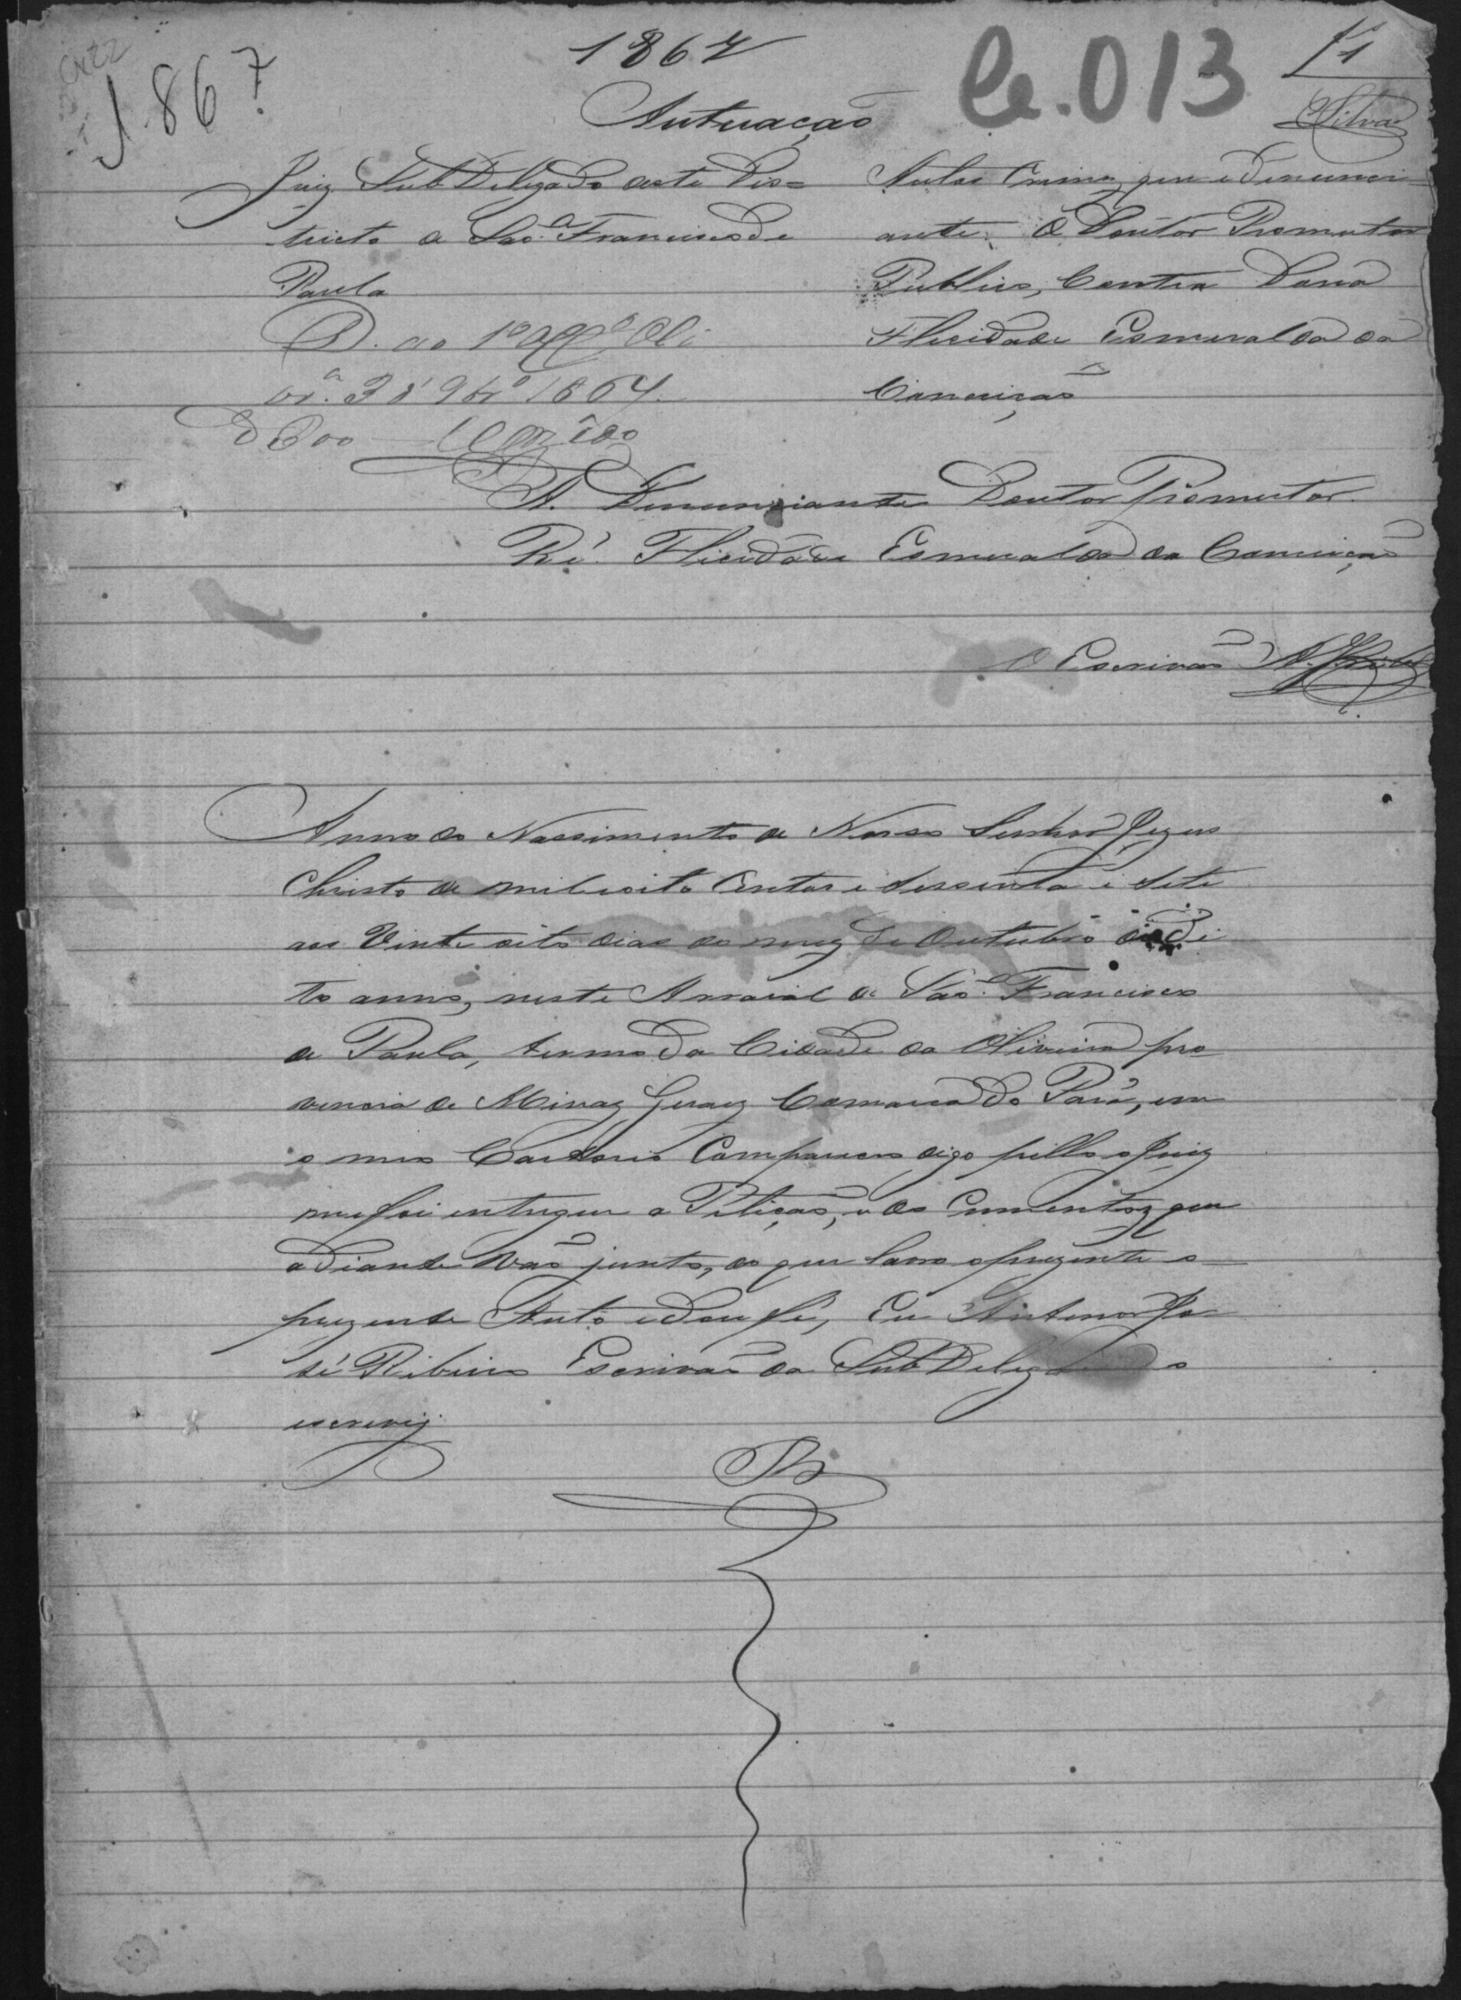 1867
1867
Ce.013
f1
Silva
Autuação
Juiz SubDelegado deste Dis=
tricto de São Francisco de
Paula
D. ao 1º Oli
vrª. 3 8 9brº 1867.
D 300
Autos Crime, que é denunci-
ante O Doutor Promutor
Publico, Contra Dona
Flicidade Esmeralda da
Conceição
A. Denunciante Doutor Promutor
Ré. Flicidade Esmeralda da Conceição
O Escrivão A. J. Ribº
Anno do Nassimento de Nosso Senhor Jezus
Christo de mil e oito Centos e sessenta e sete
aos Vinte oito dias do mez de Outubro do di
to anno, neste Arraial de São Francisco
de Paula, termo da Cidade da Oliveira pro
vencia de Minaz Geraez Comarca do Pará, em
o meu Cartorio Compareceo digo pello o Juiz
me foi entregue a Petição, e do Cumentoz que
adiante vão junto, do que lavro o prezente o
prezente Auto e dou fé, Eu Antenor Jo
sé Ribeiro Escrivão da SubDelegacia o
escrevy